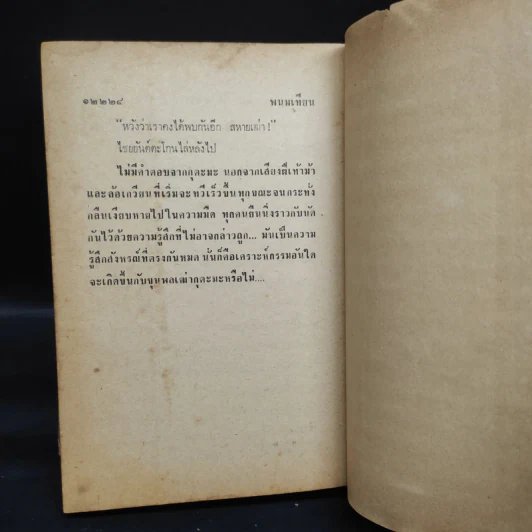 ๑๒๒๒๔ พนมเทียน
"หวังว่าเราคงได้พบกันอีก สหายเฒ่า!"
ไชยยันต์ตะโกนไล่หลังไป
ไม่มีคำตอบจากกุตะมะ นอกจากเสียงฝีเท้าม้า
และล้อเกวียนที่เริ่มจะทวีเร็วขึ้นทุกขณะจนกระทั่ง
กลืนเงียบหายไปในความมืด ทุกคนยืนนิ่งราวกับนัด
กันไว้ด้วยความรู้สึกที่ไม่อาจกล่าวถูก... มันเป็นความ
รู้สึกสังหรณ์ที่ตรงกันหมด นั่นก็คือเคราะห์กรรมอันใด
จะเกิดขึ้นกับขุนพลเฒ่ากุตะมะหรือไม่....